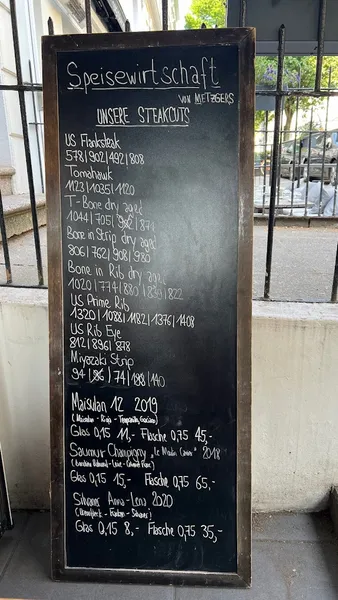 Speisewirtschaft
VON METZGERS
UNSERE STEAKCUTS
US Flanksteak
578|902|492|808
Tomahawk
1123|1035|1120
T-Bone dry aged
1044|705|982|871
Bone in Strip dry aged
806|762|908|980
Bone in Rib dry aged
1020|774|880|830|822
US Prime Rib
1320|1088|1182|1376|1408
US Rib Eye
812|896|878
Miyazaki Strip
94|86|74|188|140
Maisulan 12 2019
Glas 0,15 11,- Flasche 0,75 45,-
Saumur-Champigny 2018
Glas 0,15 15,- Flasche 0,75 65,-
Silvaner Anna-Lena 2020
Glas 0,15 8,- Flasche 0,75 35,-